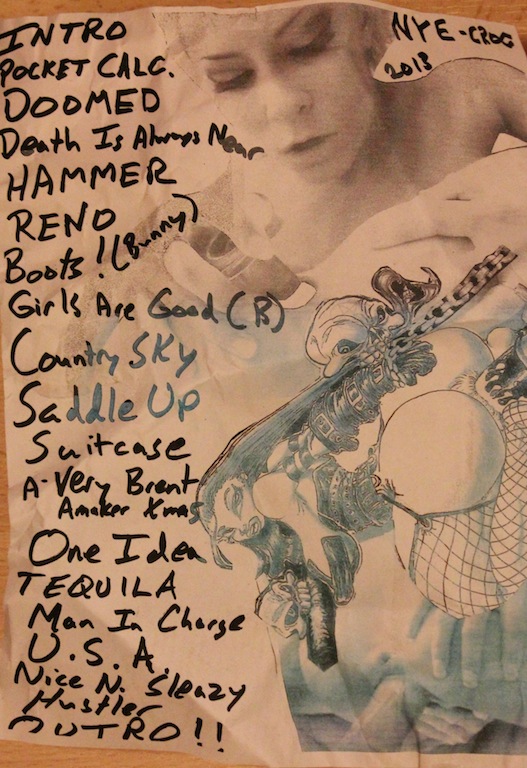 NYE-CROC
2013
INTRO
POCKET CALC.
DOOMED
Death Is Always Near
HAMMER
RENO
Boots! (Bunny)
Girls Are Good (B)
Country SKY
Saddle Up
Suitcase
A-Very Brent
Amaker Xmas
One Idea
TEQUILA
Man In Charge
U.S.A.
Nice N. Sleazy
Hustler
OUTRO!!